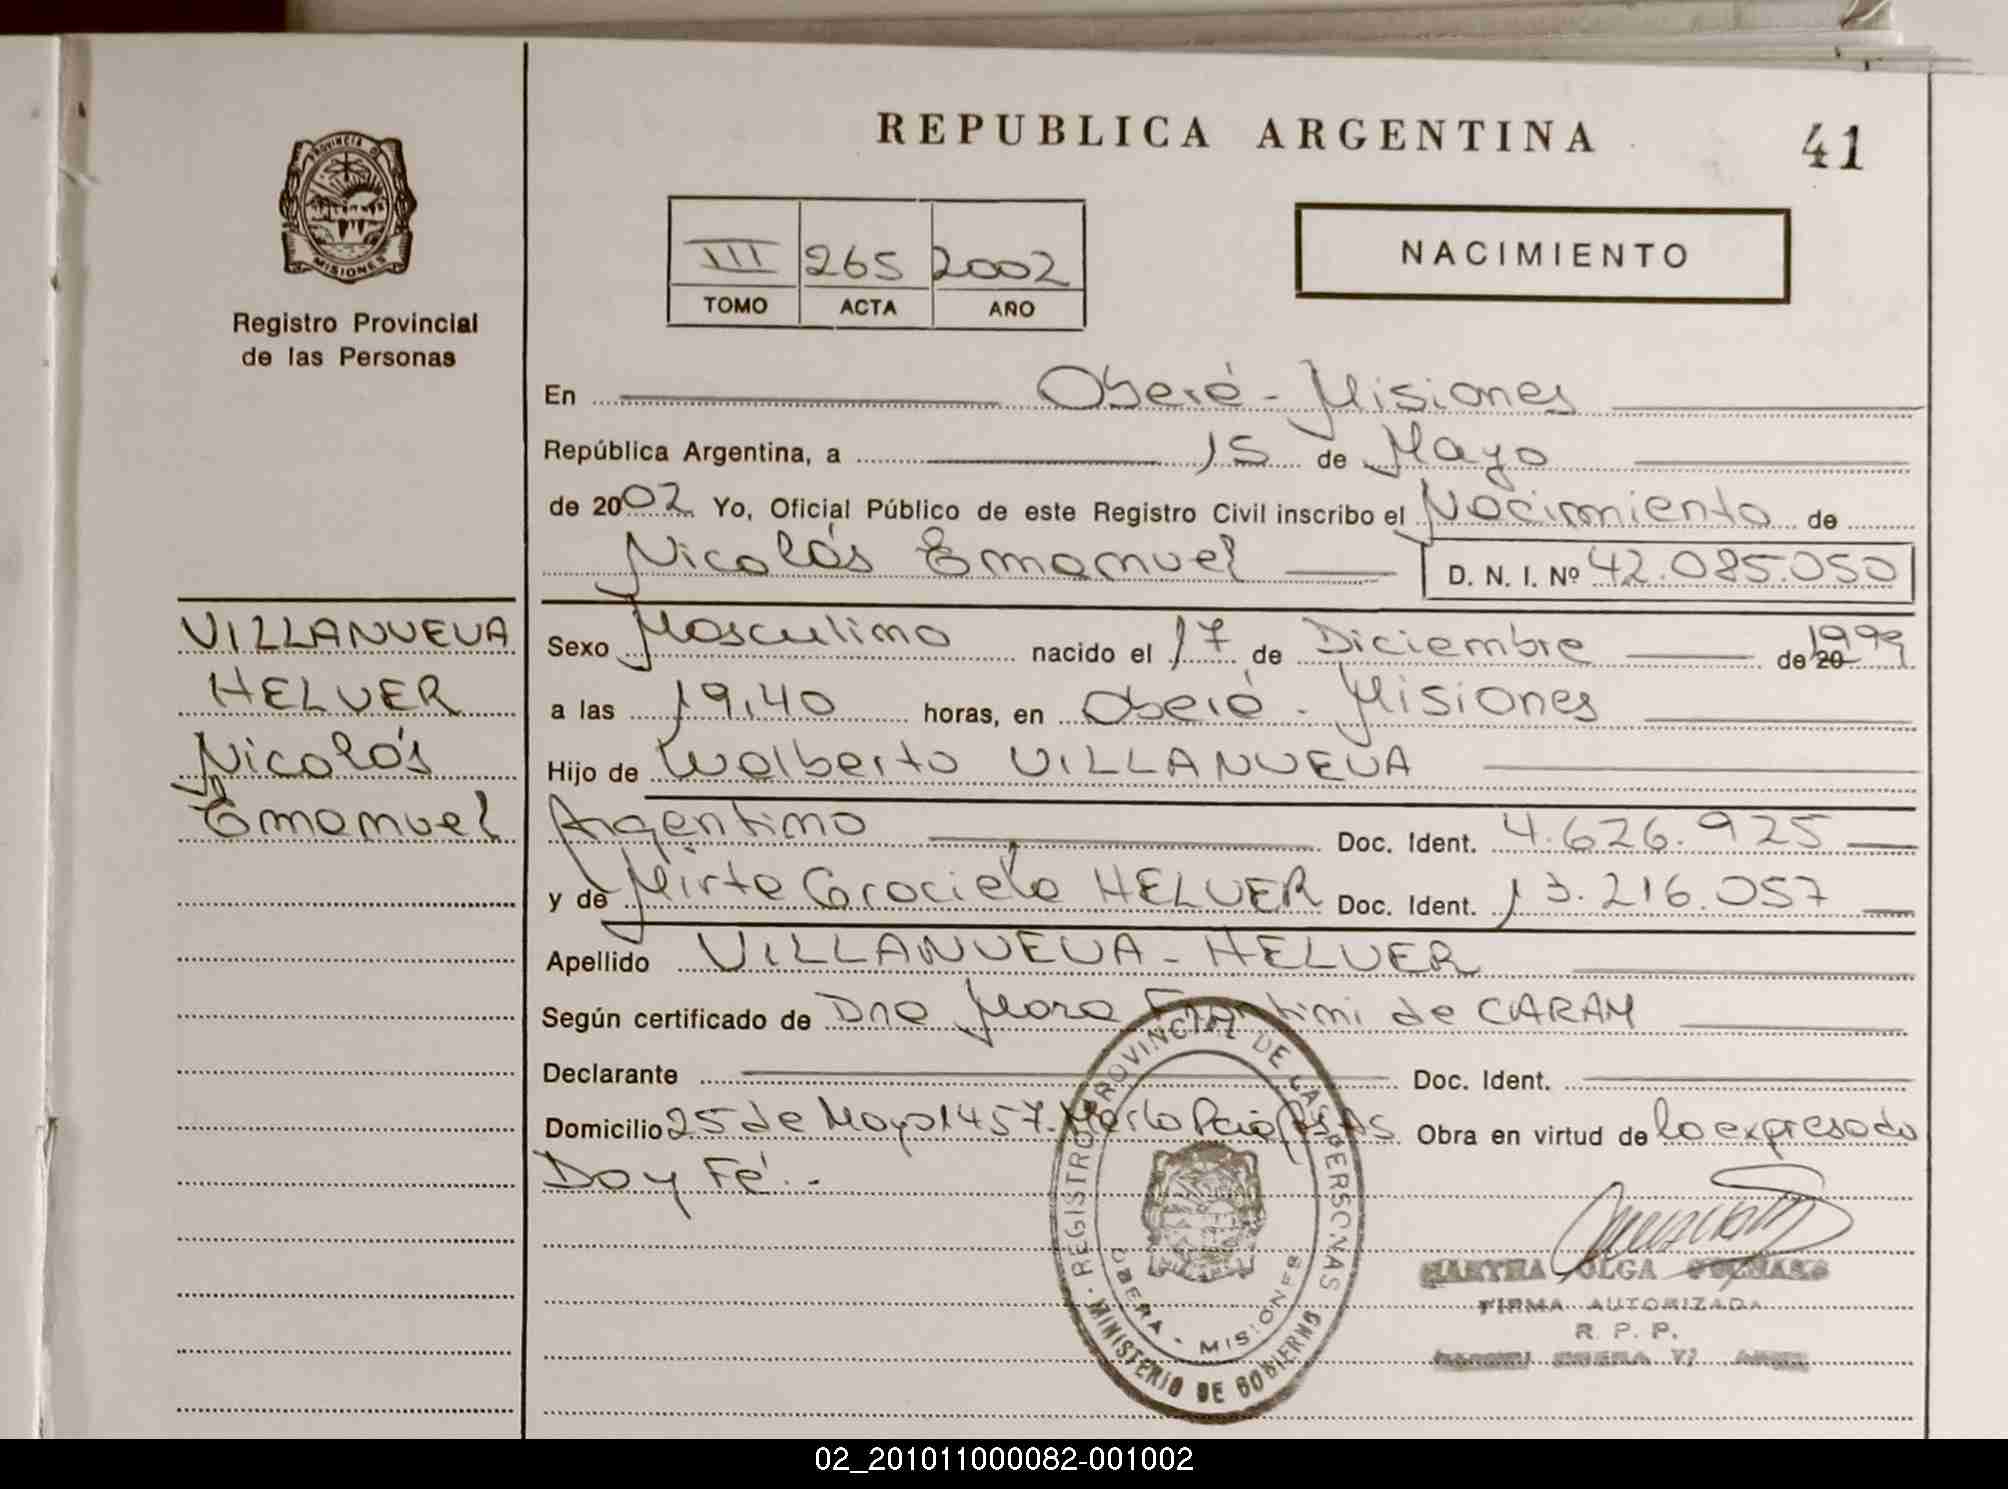 REPUBLICA ARGENTINA
41
PROVINCIA DE
MISIONES
Registro Provincial
de las Personas
III 265 2002
TOMO ACTA AÑO
NACIMIENTO
En Oberá - Misiones
República Argentina, a 15 de Mayo
de 2002 Yo, Oficial Público de este Registro Civil inscribo el Nacimiento de
Nicolás Emanuel D. N. I. Nº 42.085.050
VILLANUEVA
HELVER
Nicolás
Emanuel
Sexo Masculino nacido el 17 de Diciembre de 20 1999
a las 19,40 horas, en Oberá - Misiones
Hijo de Walberto VILLANUEVA
Argentino Doc. Ident. 4.626.925
y de Mirta Graciela HELVER Doc. Ident. 13.216.057
Apellido VILLANUEVA - HELVER
Según certificado de Dra Mara de CARAM
Declarante Doc. Ident.
Domicilio 25 de Mayo 1457. Merlo Bs As Obra en virtud de lo expresado
Doy Fé.-
REGISTRO PROVINCIAL DE LAS PERSONAS
OBERA - MISIONES
MINISTERIO DE GOBIERNO
MARTHA OLGA
FIRMA AUTORIZADA
R. P. P.
02_201011000082-001002